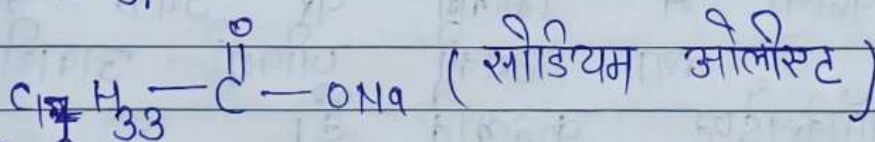 O
C17H33 – C – ONa (सोडियम ओलीस्ट)